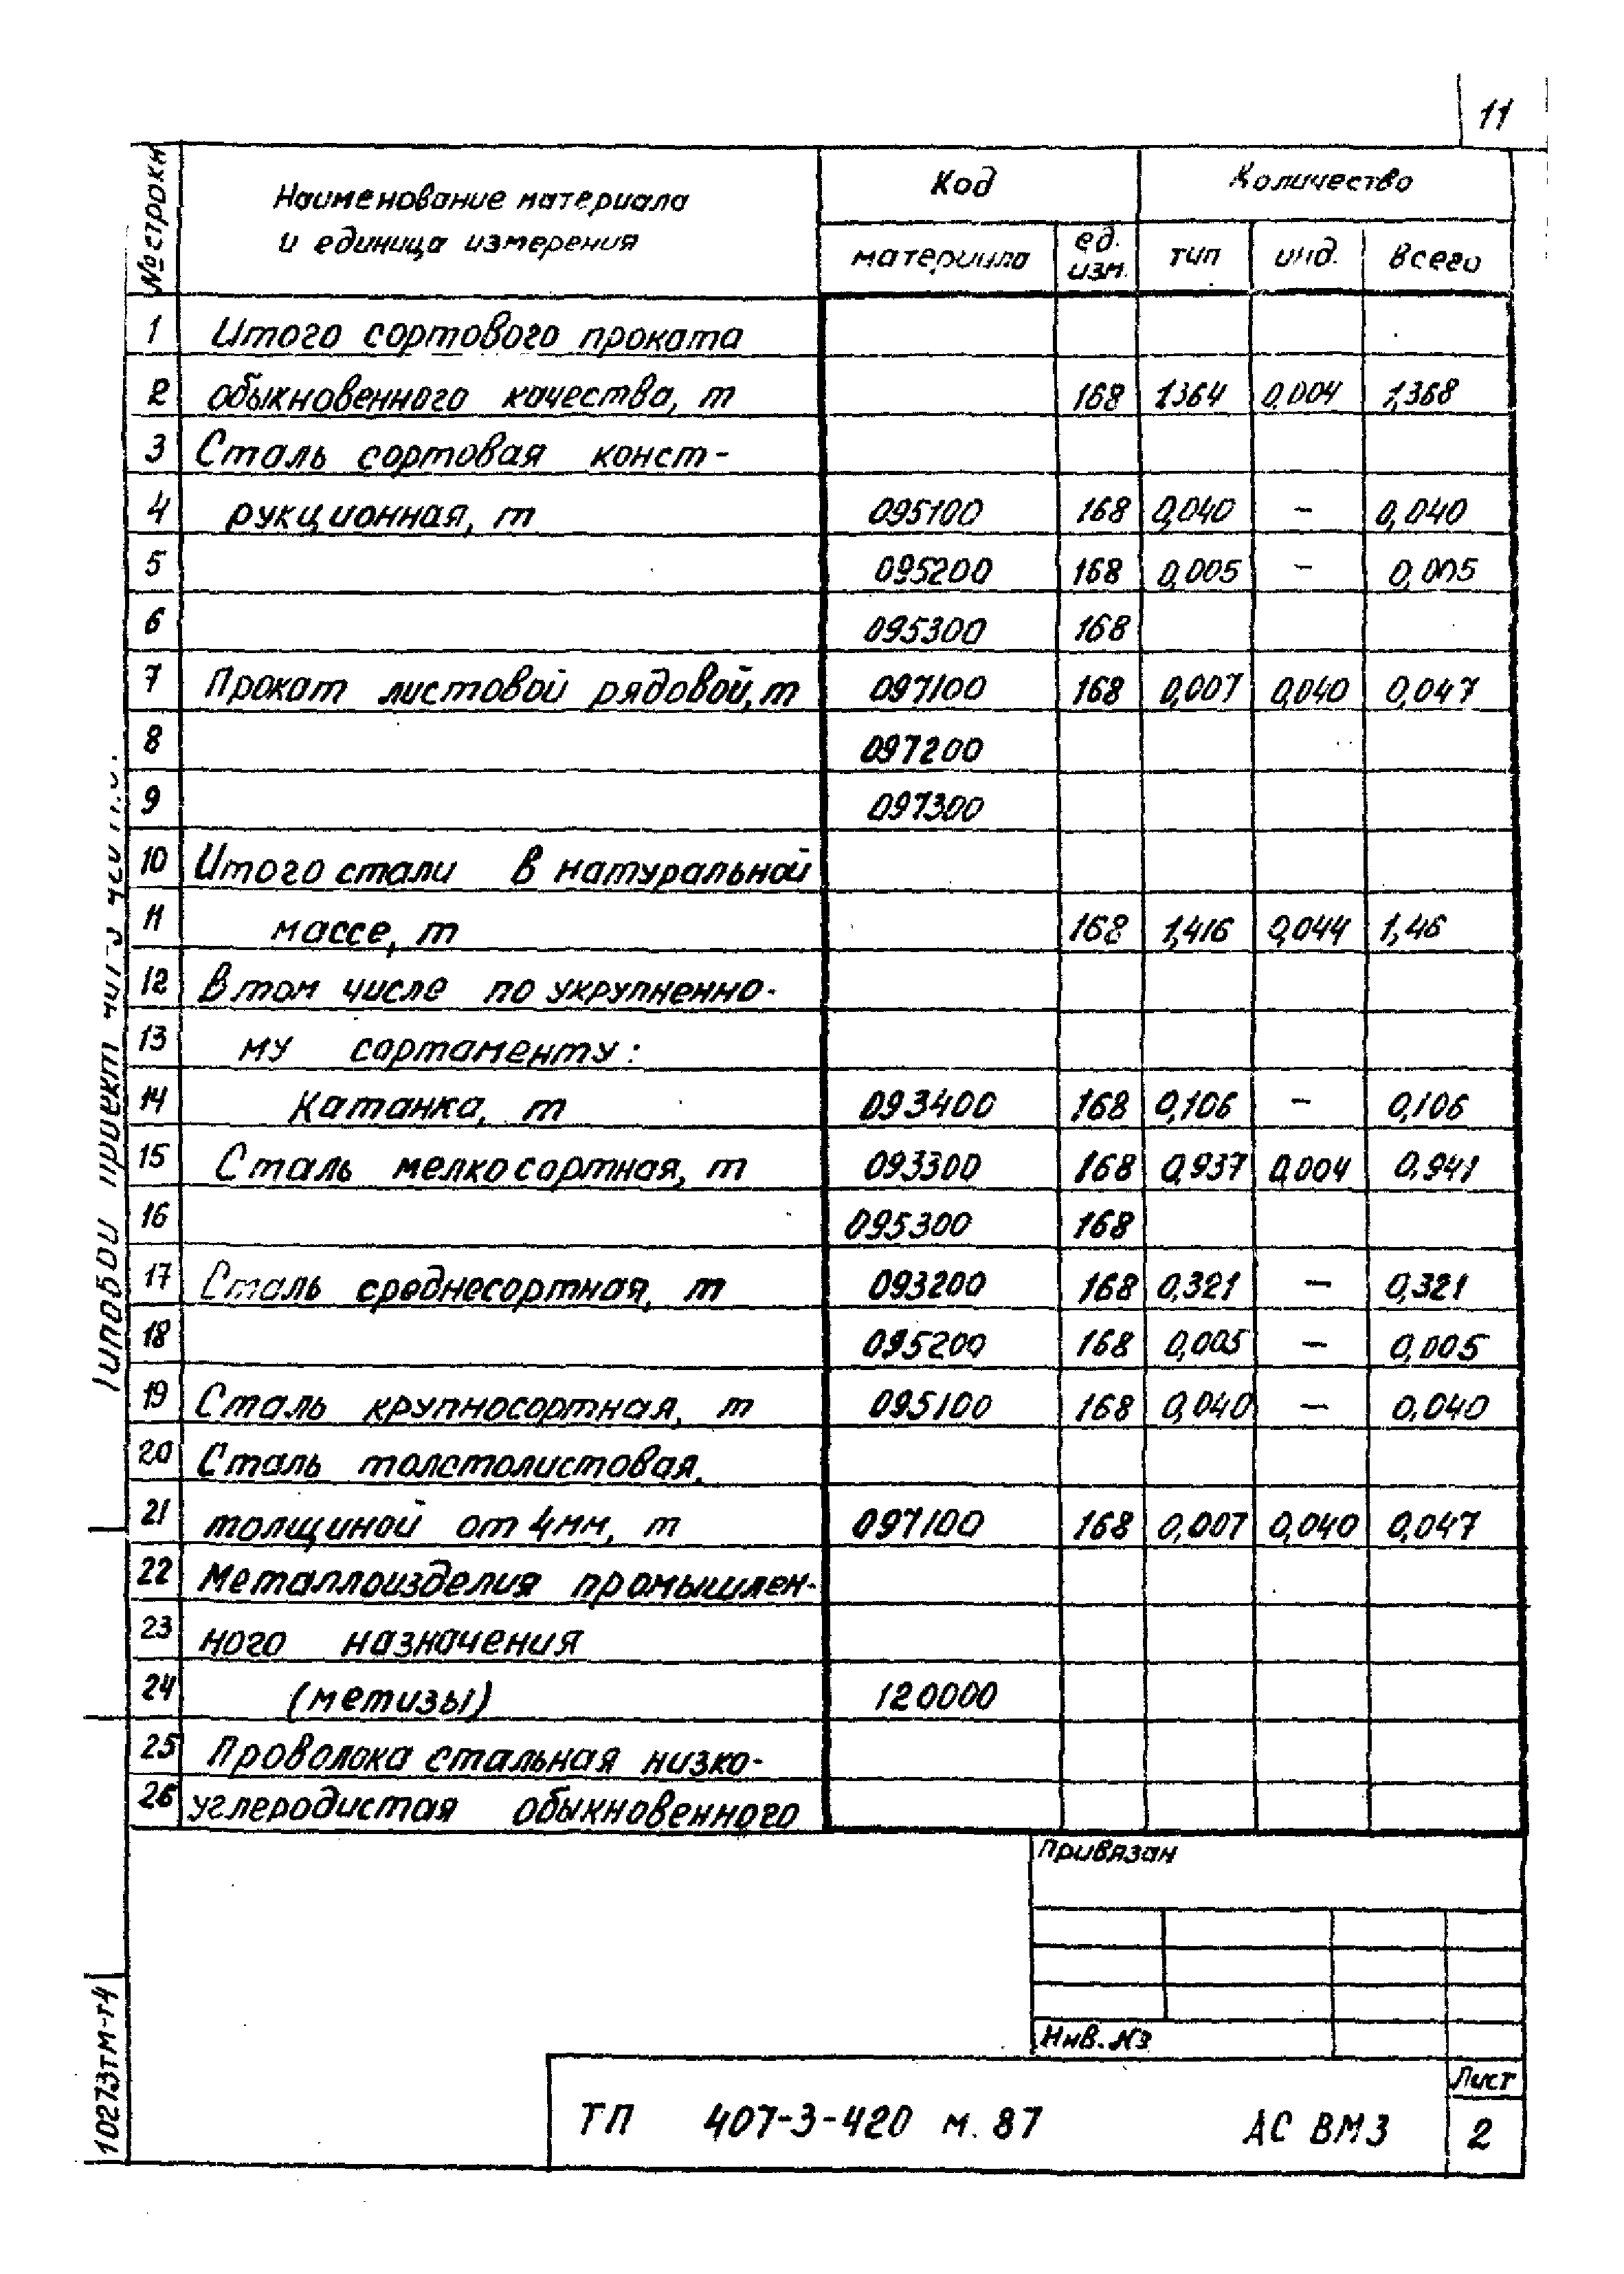 11
№ строки
Наименование материала
и единица измерения
Код
Количество
материала
ед.
изм.
тип
инд.
Всего
1 Итого сортового проката
2 обыкновенного качества, т 168 1,364 0,004 1,368
3 Сталь сортовая конст-
4 рукционная, т 095100 168 0,040 – 0,040
5 095200 168 0,005 – 0,005
6 095300 168
7 Прокат листовой рядовой, т 097100 168 0,007 0,040 0,047
8 097200
9 097300
10 Итого стали в натуральной
11 массе, т 168 1,416 0,044 1,46
12 В том числе по укрупненно-
13 му сортаменту:
14 Катанка, т 093400 168 0,106 – 0,106
15 Сталь мелкосортная, т 093300 168 0,937 0,004 0,941
16 095300 168
17 Сталь среднесортная, т 093200 168 0,321 – 0,321
18 095200 168 0,005 – 0,005
19 Сталь крупносортная, т 095100 168 0,040 – 0,040
20 Сталь толстолистовая,
21 толщиной от 4мм, т 097100 168 0,007 0,040 0,047
22 Металлоизделия промышлен-
23 ного назначения
24 (метизы) 120000
25 Проволока стальная низко-
26 углеродистая обыкновенного
Типовой проект
10273тм-т4
Привязан
Инв. №
ТП 407-3-420 м. 87 АС ВМ3
Лист
2